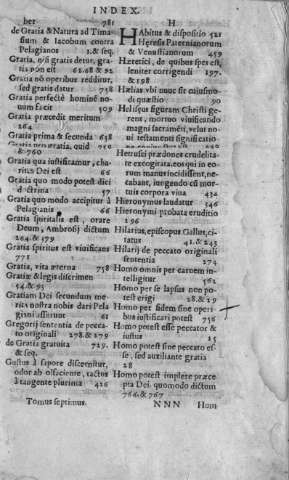 INDEX.
ber 781
de Gratia & Natura ad Timasium & Iacobum contra Pelagianos 1. & seq.
Gratia, nisi gratis detur, gratia non est 61.68 & 92
Gratia nō operibus redditur, sed gratis datur 758
Gratia perfectè hominē nouum facit 509
Gratia præcedit meritum 264
Gratia prima & secunda 638
Gratia quid
& 760
Gratia qua iustificamur, charitas Dei est 66
Gratia quo modo potest dici doctrina 57
Gratia quo modo accipitur à Pelagianis 66
Gratia spiritalis est, orare Deum, Ambrosij dictum 264 & 179
Gratia spiritus est viuificans 771
Gratia, vita æterna 758
Gratiæ & legis discrimen 54 & 95
Gratiam Dei secundum merita nostra nobis dari Pelagiani asserunt 61
Gregorij sententia de peccato originali 278. & 279
de Gratia gratuita 729. & seq.
Gustus à sapore discernitur, odor ab olfaciente, tactus à tangente plurima 426
Tomus septimus.
H
HAbitus & dispositio 521
Hæresis Paternianorum & Venustianorum 459
Hæretici, de quibus spes est, leniter corrigendi 197. & 198
Hælias vbi nunc sit cuiusmodi quæstio 90
Helisęus figuram Christi gerens, mortuo viuificando magni sacramēti, velut noui testamenti significatio-
Hetrusci prædones crudelitate excogitata eos qui in eorum manus incidissent, necabant, iungendo eis mortuis corpora viua 434
Hieronymus laudatur 346
Hieronymi probata eruditio 196
Hilarius, episcopus Gallus, citatur 41. & 245
Hilarij de peccato originali sententia 274
Homo omnis per carnem intelligitur 561
Homo per se lapsus non potest erigi 28. & 29
Homo per fidem sine operibus iustificari potest 756
Homo potest esse peccator & iustus 15
Homo potest sine peccato esse, sed auxiliante gratia 28
Homo potest implere præcepta Dei. quomodo dictum 766. & 767
NNN Hom